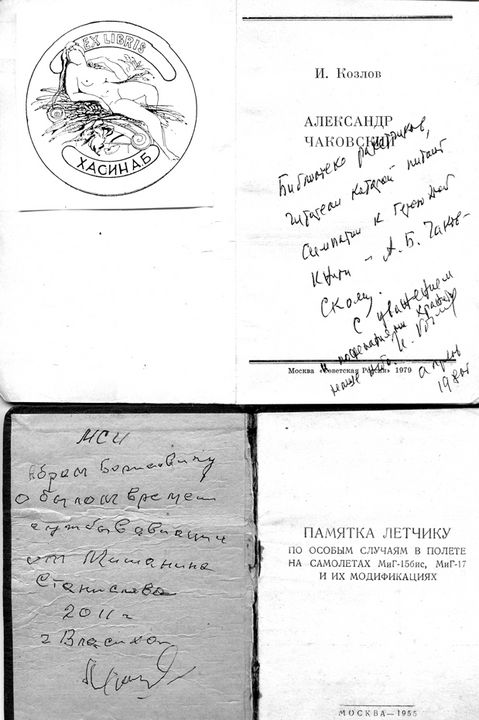 EX LIBRIS
ХАСИН А.Б
И. Козлов
АЛЕКСАНДР
ЧАКОВСКИЙ
Библиотеке ракетчиков,
читатели которой питают
симпатии к герою этой
книги – А. Б. Чаков-
скому.
С уважением
и пожеланиями хранить
наше небо.
апрель
Москва «Советская Россия» 1979
МСИ
Абрам Борисовичу
о былом времени
службы в авиации
от Мишанина
Станислава
2011 г
г Власиха
ПАМЯТКА ЛЕТЧИКУ
ПО ОСОБЫМ СЛУЧАЯМ В ПОЛЕТЕ
НА САМОЛЕТАХ МиГ-15бис, МиГ-17
И ИХ МОДИФИКАЦИЯХ
МОСКВА—1955